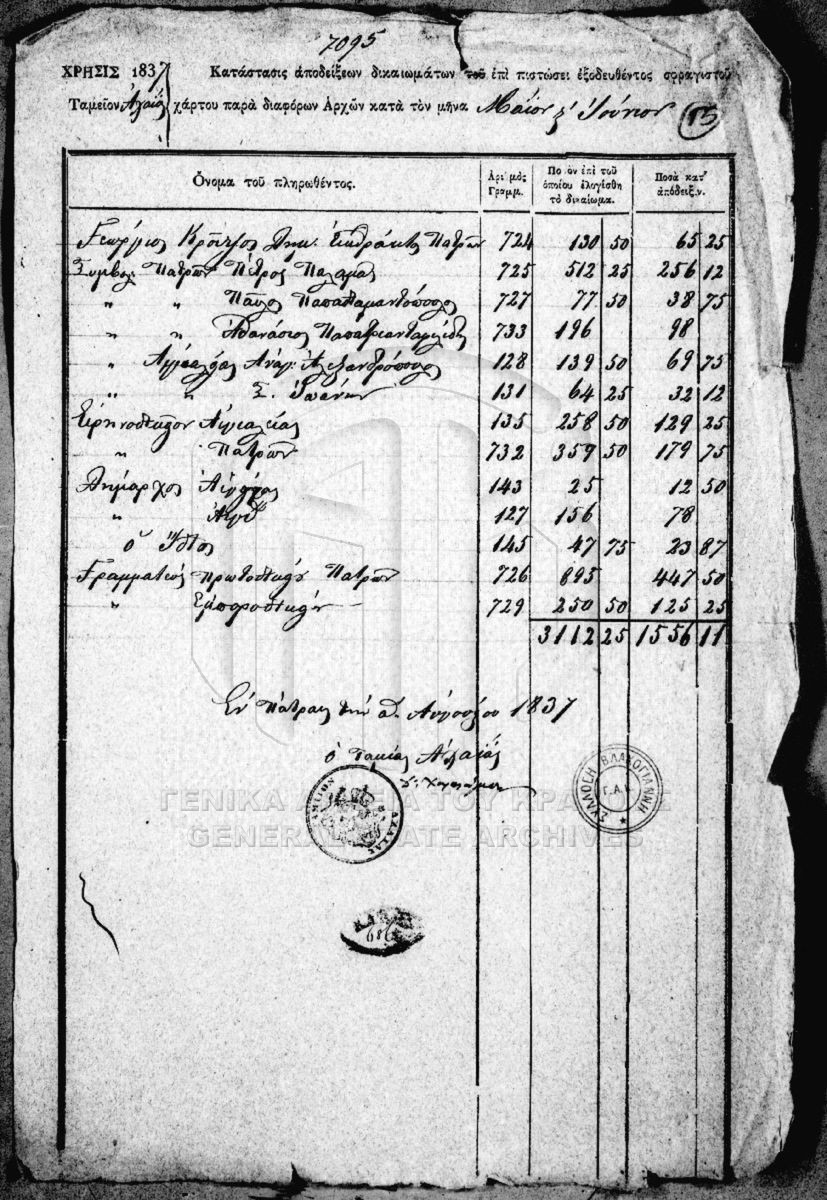 7095
ΧΡΗΣΙΣ 1837 Κατάστασις ἀποδείξεων δικαιωμάτων τοῦ ἐπὶ πιστώσει ἐξοδευθέντος σφραγιστοῦ
Ταμεῖον Ἀχαΐας χάρτου παρὰ διαφόρων Ἀρχῶν κατὰ τὸν μῆνα Μάϊον & Ἰούνιον 15
Ὄνομα τοῦ πληρωθέντος. Ἀριθμὸς Γραμμ. Ποσὸν ἐπὶ τοῦ ὁποίου ἐλογίσθη τὸ δικαίωμα. Ποσὰ κατ' ἀπόδειξιν.
Γεώργιος Πατρῶν 724 130 50 65 25
Συμβολ. Πατρῶν Πέτρος Παλαμᾶς 725 512 25 256 12
" " Παῦλος Παπαδιαμαντόπουλος 727 77 50 38 75
" " Ἀθανάσιος 733 196 98
" Αἰγιαλείας Ἀναγ: Ἀλεξανδρόπουλος 128 139 50 69 75
" " Σ. Ἰωάννου 131 64 25 32 12
Εἰρηνοδικεῖον Αἰγιαλείας 135 258 50 129 25
" Πατρῶν 732 359 50 179 75
Δήμαρχος 143 25 12 50
" Αἰγίου 127 156 78
ὁ ἴδιος 145 47 75 23 87
Γραμματεὺς Πρωτοδικῶν Πατρῶν 726 895 447 50
" Ἐμποροδικῶν 729 250 50 125 25
3112 25 1556 11
Ἐν Πάτραις τὴν Αὐγούστου 1837
ὁ Ταμίας Ἀχαΐας
ΤΑΜΕΙΟΝ ΑΧΑΪΑΣ
ΣΥΛΛΟΓΗ ΒΛΑΧΟΓΙΑΝΝΗ Γ.Α.Κ.
ΓΕΝΙΚΑ ΑΡΧΕΙΑ ΤΟΥ ΚΡΑΤΟΥΣ
GENERAL STATE ARCHIVES